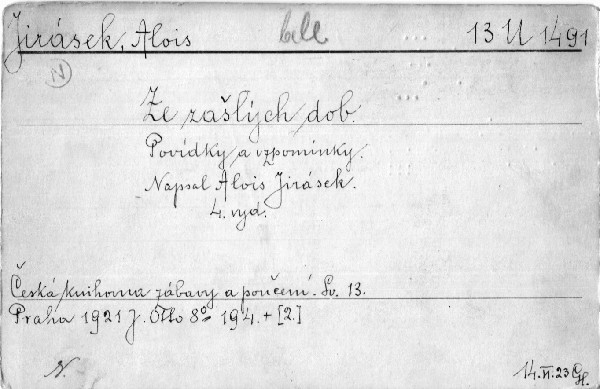 Jirásek, Alois bele 13 U 1491
N
Ze zašlých dob.
Povídky a vzpomínky.
Napsal Alois Jirásek.
4. vyd.
Česká knihovna zábavy a poučení. Sv. 13.
Praha 1921 J. Otto 8° 194. + [2.]
N. 14.VI.23